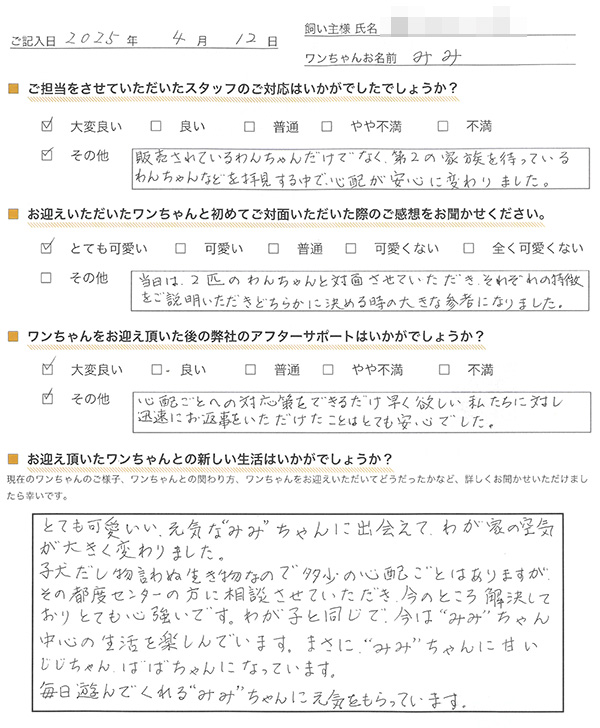 飼い主様 氏名
ご記入日 2025 年 4 月 12 日
ワンちゃんお名前 みみ
■ ご担当をさせていただいたスタッフのご対応はいかがでしたでしょうか？
☑ 大変良い □ 良い □ 普通 □ やや不満 □ 不満
☑ その他 販売されているわんちゃんだけでなく、第2の家族を待っている
わんちゃんなどを拝見する中で、心配が安心に変わりました。
■ お迎えいただいたワンちゃんと初めてご対面いただいた際のご感想をお聞かせください。
☑ とても可愛い □ 可愛い □ 普通 □ 可愛くない □ 全く可愛くない
□ その他 当日は、2匹のわんちゃんと対面させていただき、それぞれの特徴
をご説明いただきどちらかに決める時の大きな参考になりました。
■ ワンちゃんをお迎え頂いた後の弊社のアフターサポートはいかがでしょうか？
☑ 大変良い □ 良い □ 普通 □ やや不満 □ 不満
☑ その他 心配ごとへの対応策をできるだけ早く欲しい私たちに対し
迅速にお返事をいただけたことはとても安心でした。
■ お迎え頂いたワンちゃんとの新しい生活はいかがでしょうか？
現在のワンちゃんのご様子、ワンちゃんとの関わり方、ワンちゃんをお迎えいただいてどうだったかなど、詳しくお聞かせいただけまし
たら幸いです。
とても可愛いい、元気な“みみ”ちゃんに出会えて、わが家の空気
が大きく変わりました。
子犬だし物言わぬ生き物なので多少の心配ごとはありますが、
その都度センターの方に相談させていただき、今のところ解決して
おりとても心強いです。わが子と同じで、今は“みみ”ちゃん
中心の生活を楽しんでいます。まさに、“みみ”ちゃんに甘い
じじちゃん、ばばちゃんになっています。
毎日遊んでくれる“みみ”ちゃんに元気をもらっています。